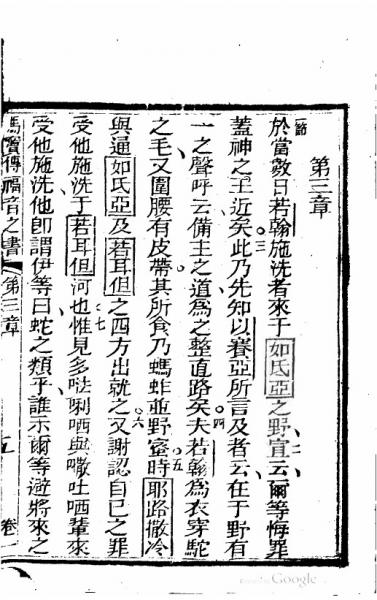 第三章
一節於當數日若翰施洗者來于如氏亞之野宣二云爾等悔罪
蓋神之王近矣三此乃先知以賽亞所言及者云在于野有
一之聲呼云備主之道為之整直路矣四夫若翰為衣穿駝
之毛又圍腰有皮帶其所食乃螞蚱並野蜜五時耶路撒冷
與逼如氏亞及若耳但之四方出就之六又謝認自己之罪
受他施洗于若耳但河也七惟見多唎哂與吐哂輩來
受他施洗他即謂伊等曰蛇之類乎誰示爾等避將來之
馬竇傳福音之書 第三章 五 卷一
Google